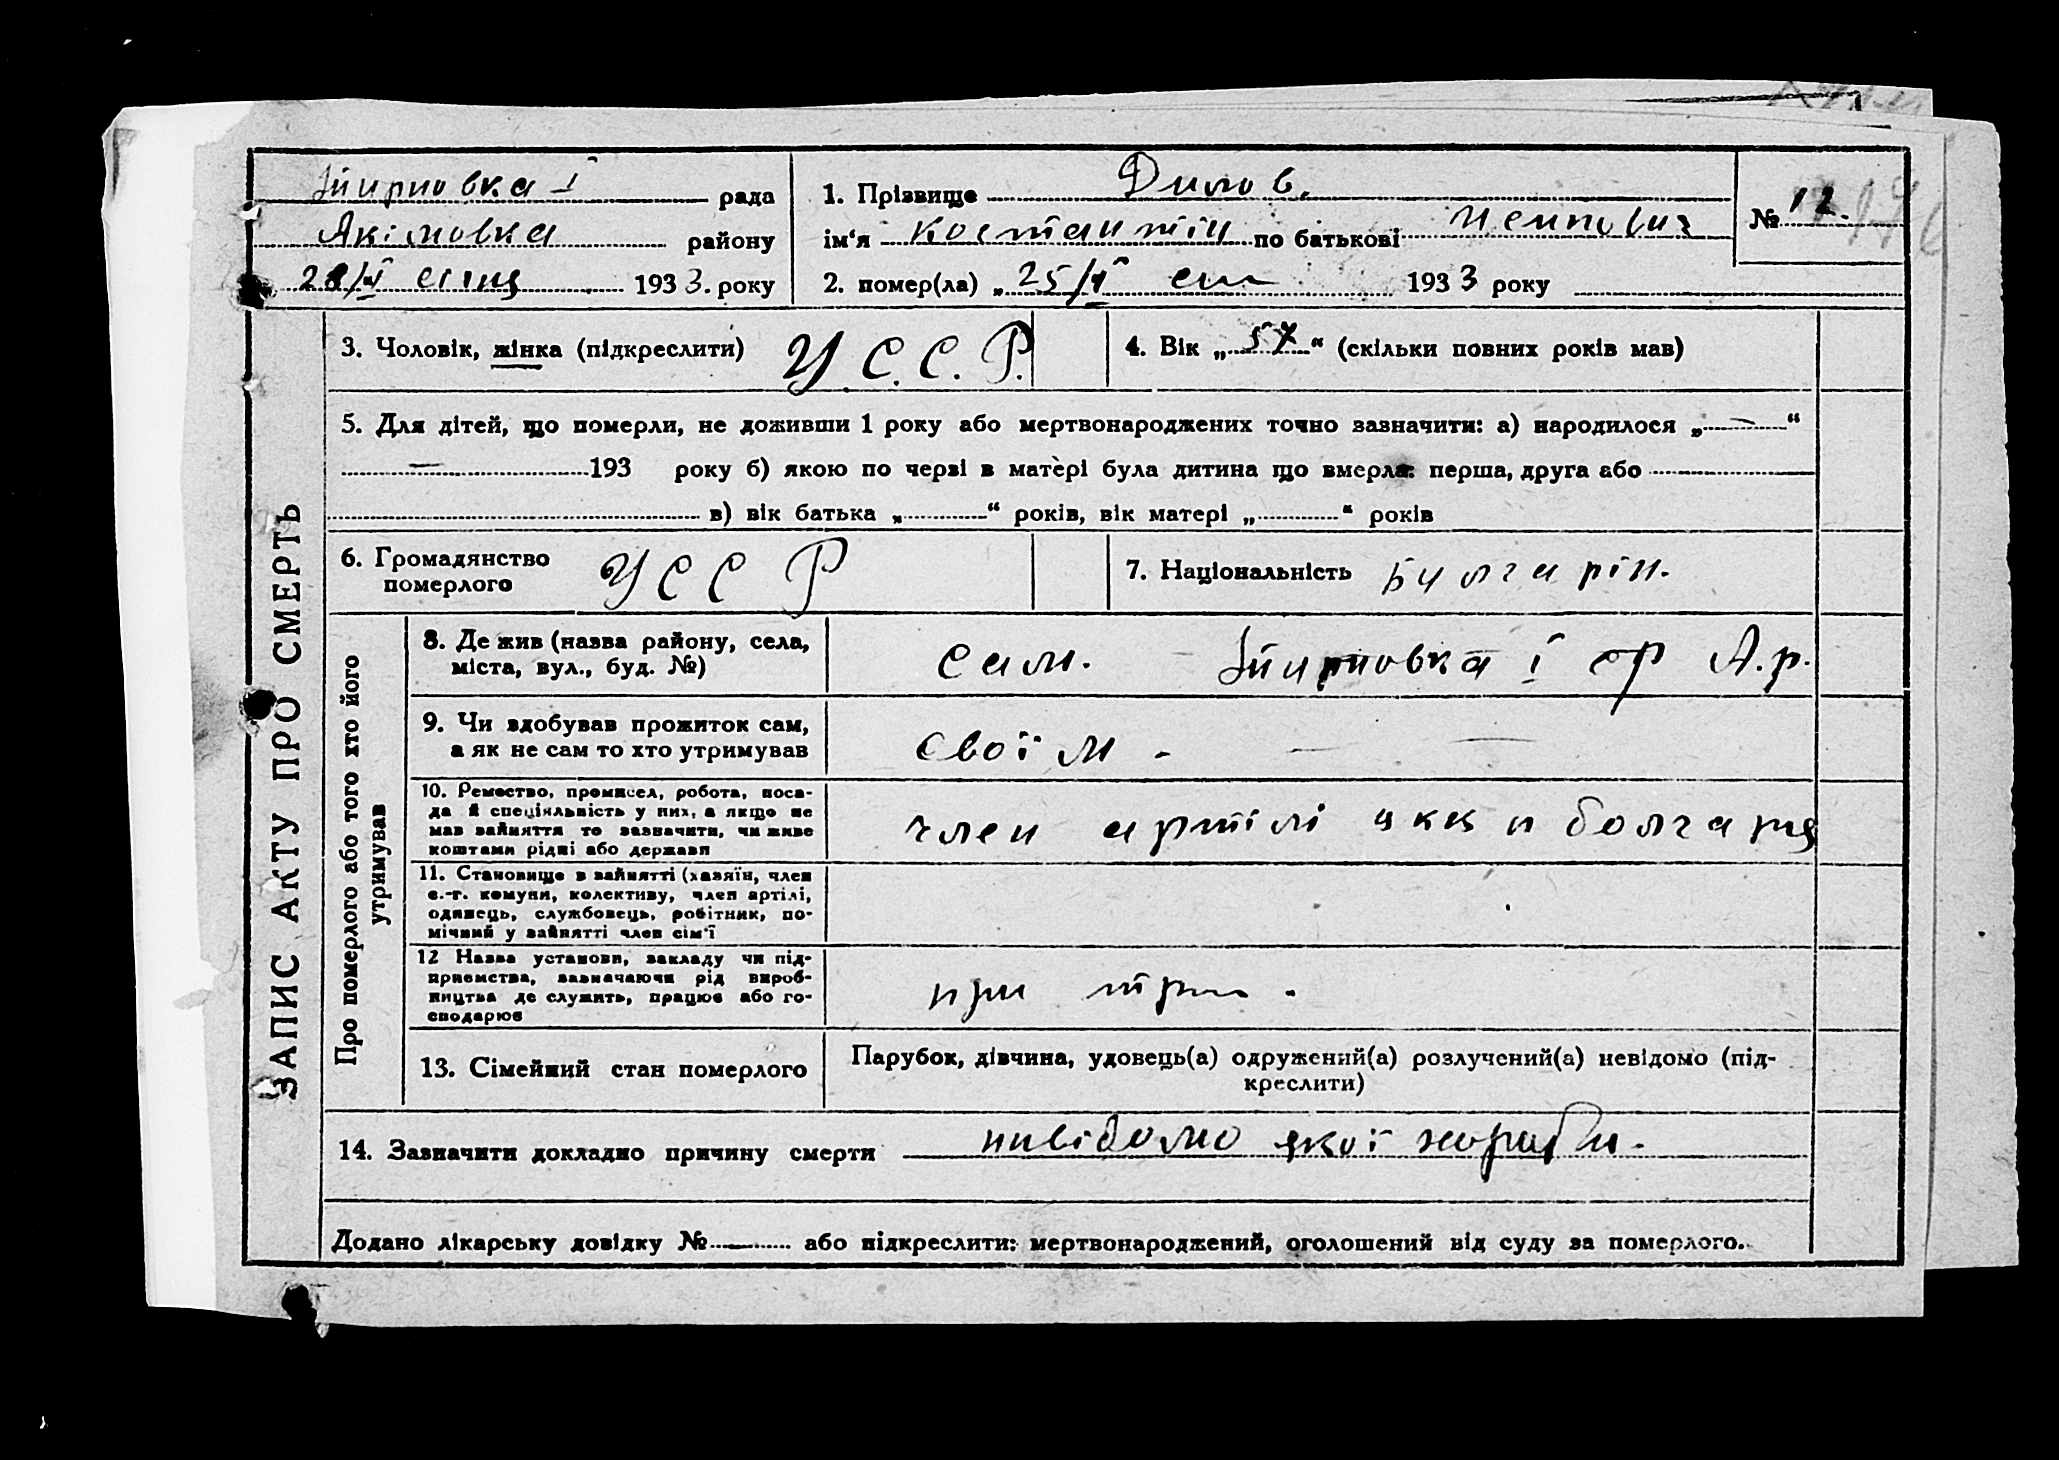 рада
Якімовка району
28/V 1933. року
1. Прізвище Димов.
ім‘я Костантін по батькові
2. помер(ла) „25/V 1933 року
№ 12.
ЗАПИС АКТУ ПРО СМЕРТЬ
3. Чоловік, жінка (підкреслити) У.С.С.Р. 4. Вік „57“ (скільки повних років мав)
5. Для дітей, що померли, не доживши 1 року або мертвонароджених точно зазначити: а) народилося „—“
— 193 року б) якою по черзі в матері була дитина що вмерла: перша, друга або
в) вік батька „ “ років, вік матері „ “ років
6. Громадянство
померлого УССР
7. Національність Булгарін.
Про померлого або того хто його
утримував
8. Де жив (назва району, села,
міста, вул., буд. №)
А.р.
9. Чи здобував прожиток сам,
а як не сам то хто утримував
своїм. — —
10. Ремество, промисел, робота, поса-
да й спеціяльність у них, а якщо не
мав зайняття то зазначити, чи живе
коштами рідні або держави
член артілі
11. Становище в зайнятті (хазяїн, член
с.-г. комуни, колективу, член артілі,
одинець, службовець, робітник, по-
мічний у зайнятті член сім‘ї
12 Назва установи, закладу чи під-
приємства, зазначаючи рід вироб-
ництва де служить, працює або го-
сподарює
13. Сімейний стан померлого
Парубок, дівчина, удовець(а) одружений(а) розлучений(а) невідомо (під-
креслити)
14. Зазначити докладно причину смерти нивідомо якої
Додано лікарську довідку № або підкреслити: мертвонароджений, оголошений від суду за померлого.